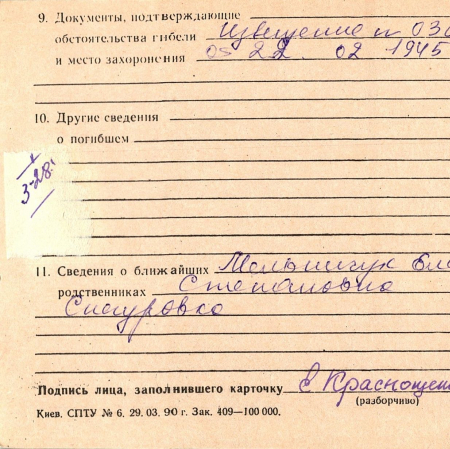 9. Документы, подтверждающие
обстоятельства гибели Извещение п 030
и место захоронения 05 22. 02 1945
10. Другие сведения
о погибшем
3-28.
11. Сведения о ближайших Мельничук
родственниках Степановна
Снигуровка
Подпись лица, заполнившего карточку
(разборчиво)
Киев. СПТУ № 6. 29. 03. 90 г. Зак. 409—100 000.